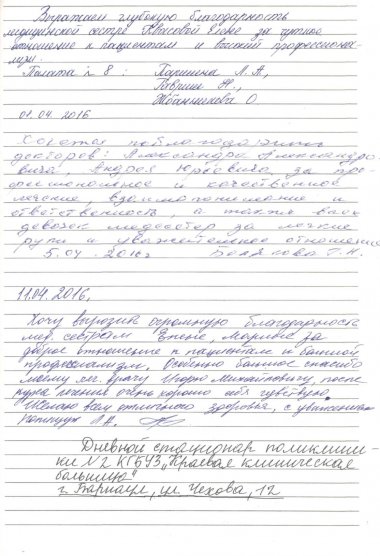 Выражаем глубокую благодарность
медицинской сестре Квасовой Елене за чуткое
отношение к пациентам и высокий профессиона-
лизм.
Палата № 8: Паршина Л. А.,
Гаврищ Н.,
О.
01.04.2016
Хочется поблагодарить
докторов: Александра Александро-
вича, Андрея Юрьевича за про-
фессиональное и качественное
лечение, взаимопонимание и
ответственность, а также всех
девочек медсестер за легкие
руки и уважительное отношение
5.04.2016г
11.04.2016.
Хочу выразить огромную благодарность
мед. сестрам Елене, Марине за
доброе отношение к пациентам и большой
профессиализм. Особенно большое спасибо
моему леч. врачу Игорю Михайловичу, после
курса лечения очень хорошо себя чувствую.
Желаю Вам отличного здоровья, с уважением
Дневной стационар поликлини-
ки №2 КГБУЗ „Краевая клиническая
больница"
г. Барнаул, ул. Чехова, 12